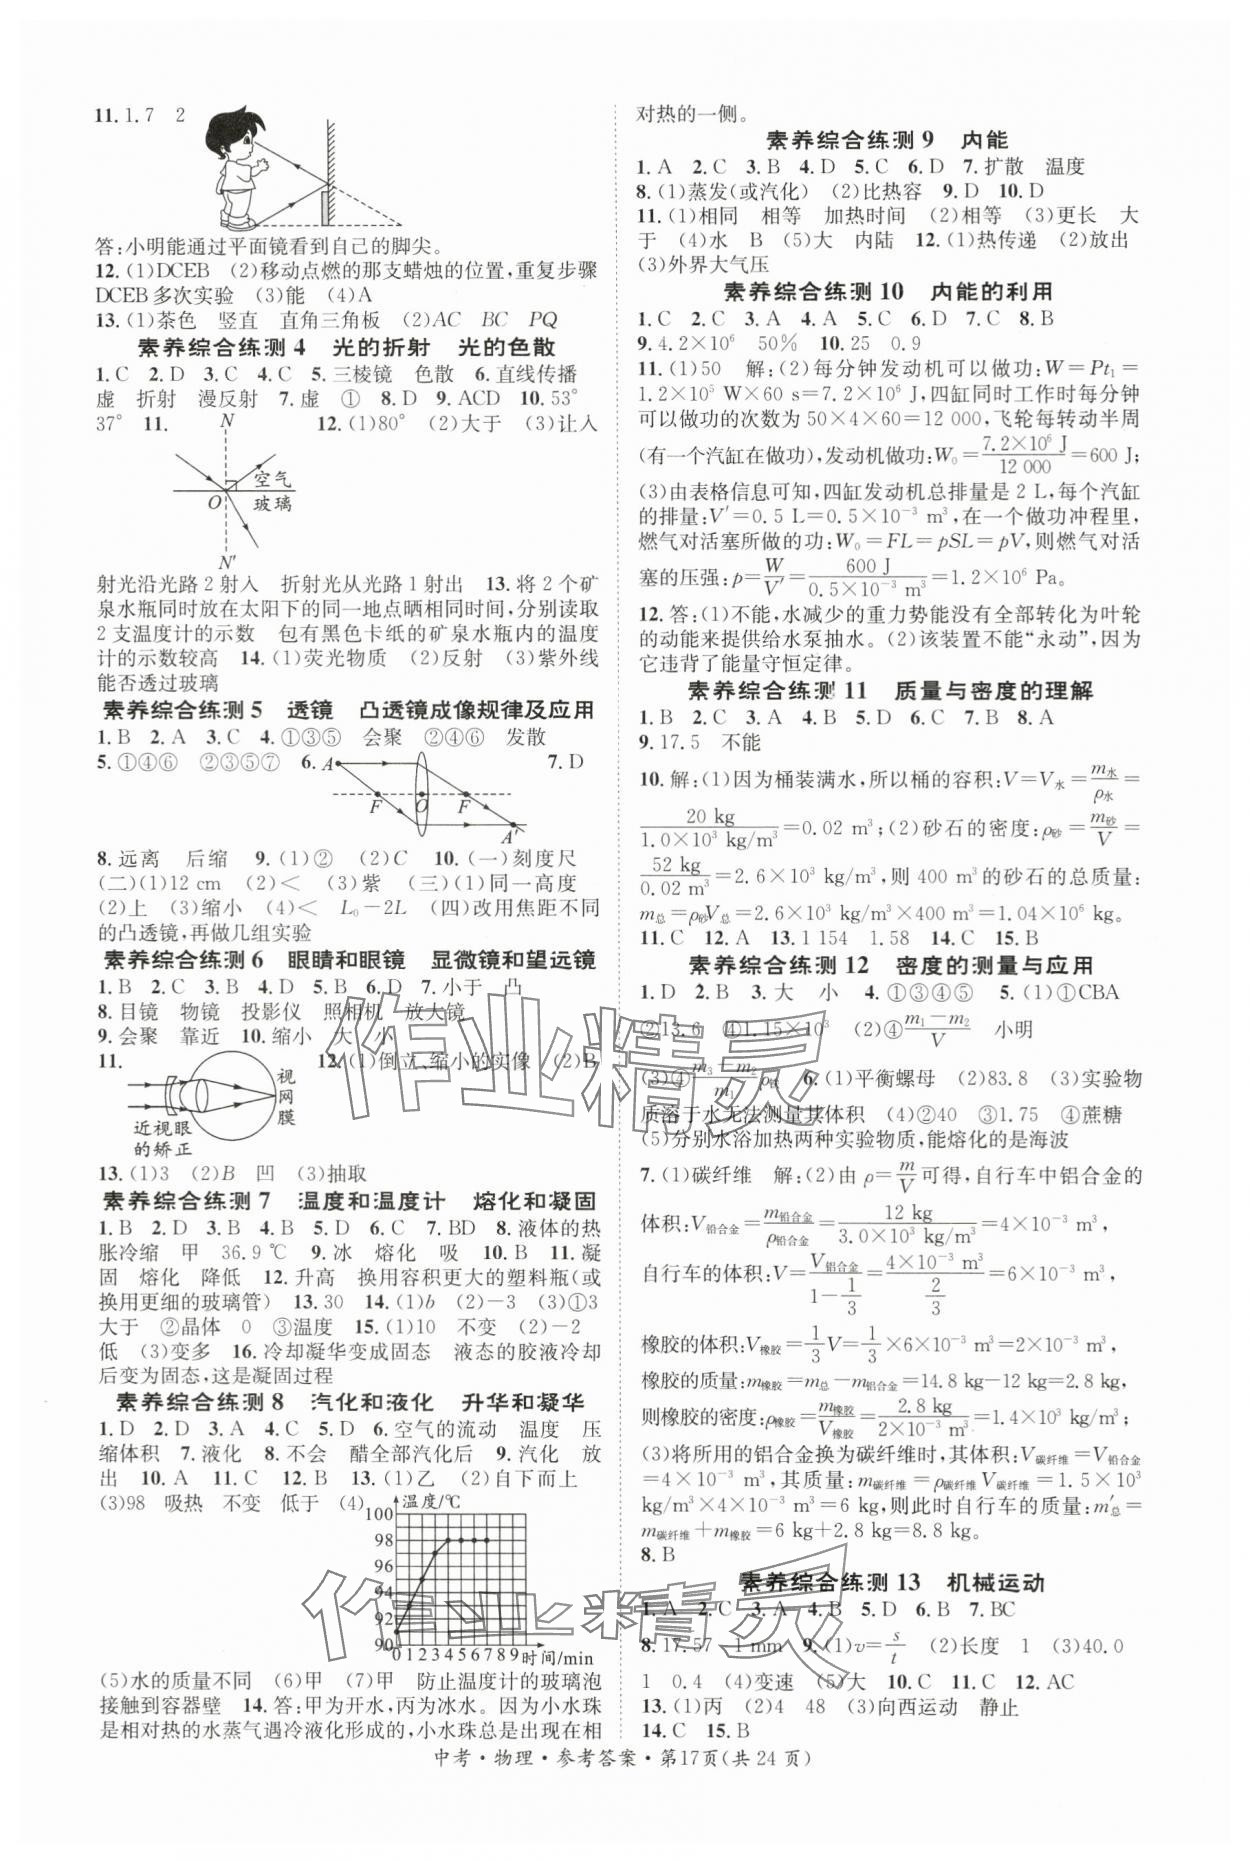 11. 1.7　2
答:小明能通过平面镜看到自己的脚尖。
12. (1)DCEB　(2)移动点燃的那支蜡烛的位置,重复步骤
DCEB多次实验　(3)能　(4)A
13. (1)茶色　竖直　直角三角板　(2)AC　BC　PQ
素养综合练测 4　光的折射　光的色散
1. C　2. D　3. C　4. C　5. 三棱镜　色散　6. 直线传播
虚　折射　漫反射　7. 虚　①　8. D　9. ACD　10. 53°
37°　11.　12. (1)80°　(2)大于　(3)让入
N
空气
O
玻璃
N′
射光沿光路 2 射入　折射光从光路 1 射出　13. 将 2 个矿
泉水瓶同时放在太阳下的同一地点晒相同时间,分别读取
2 支温度计的示数　包有黑色卡纸的矿泉水瓶内的温度
计的示数较高　14. (1)荧光物质　(2)反射　(3)紫外线
能否透过玻璃
素养综合练测 5　透镜　凸透镜成像规律及应用
1. B　2. A　3. C　4. ①③⑤　会聚　②④⑥　发散
5. ①④⑥　②③⑤⑦　6. A　7. D
F　O　F
A′
8. 远离　后缩　9. (1)②　(2)C　10. (一)刻度尺
(二)(1)12 cm　(2)<　(3)紫　(三)(1)同一高度
(2)上　(3)缩小　(4)<　L₀−2L　(四)改用焦距不同
的凸透镜,再做几组实验
素养综合练测 6　眼睛和眼镜　显微镜和望远镜
1. B　2. C　3. B　4. D　5. B　6. D　7. 小于　凸
8. 目镜　物镜　投影仪　照相机　放大镜
9. 会聚　靠近　10. 缩小　大　小
11.　12. (1)倒立、缩小的实像　(2)B
视
网
膜
近视眼
的矫正
13. (1)3　(2)B　凹　(3)抽取
素养综合练测 7　温度和温度计　熔化和凝固
1. B　2. D　3. B　4. B　5. D　6. C　7. BD　8. 液体的热
胀冷缩　甲　36.9 ℃　9. 冰　熔化　吸　10. B　11. 凝
固　熔化　降低　12. 升高　换用容积更大的塑料瓶(或
换用更细的玻璃管)　13. 30　14. (1)b　(2)−3　(3)①3
大于　②晶体　0　③温度　15. (1)10　不变　(2)−2
低　(3)变多　16. 冷却凝华变成固态　液态的胶液冷却
后变为固态,这是凝固过程
素养综合练测 8　汽化和液化　升华和凝华
1. D　2. D　3. A　4. C　5. D　6. 空气的流动　温度　压
缩体积　7. 液化　8. 不会　醋全部汽化后　9. 汽化　放
出　10. A　11. C　12. B　13. (1)乙　(2)自下而上
(3)98　吸热　不变　低于　(4)
温度/℃
100
98
96
94
92
90
0 1 2 3 4 5 6 7 8 9 时间/min
(5)水的质量不同　(6)甲　(7)甲　防止温度计的玻璃泡
接触到容器壁　14. 答:甲为开水,丙为冰水。因为小水珠
是相对热的水蒸气遇冷液化形成的,小水珠总是出现在相
对热的一侧。
素养综合练测 9　内能
1. A　2. C　3. B　4. D　5. C　6. D　7. 扩散　温度
8. (1)蒸发(或汽化)　(2)比热容　9. D　10. D
11. (1)相同　相等　加热时间　(2)相等　(3)更长　大
于　(4)水　B　(5)大　内陆　12. (1)热传递　(2)放出
(3)外界大气压
素养综合练测 10　内能的利用
1. C　2. C　3. A　4. A　5. C　6. D　7. C　8. B
9. 4.2×10⁶　50%　10. 25　0.9
11. (1)50　解:(2)每分钟发动机可以做功:W=Pt₁=
1.2×10⁵ W×60 s=7.2×10⁶ J,四缸同时工作时每分钟
可以做功的次数为 50×4×60=12 000,飞轮每转动半周
(有一个汽缸在做功),发动机做功:W₀=7.2×10⁶ J/12 000=600 J;
(3)由表格信息可知,四缸发动机总排量是 2 L,每个汽缸
的排量:V′=0.5 L=0.5×10⁻³ m³,在一个做功冲程里,
燃气对活塞所做的功:W₀=FL=pSL=pV,则燃气对活
塞的压强:p=W/V′=600 J/0.5×10⁻³ m³=1.2×10⁶ Pa。
12. 答:(1)不能,水减少的重力势能没有全部转化为叶轮
的动能来提供给水泵抽水。(2)该装置不能“永动”,因为
它违背了能量守恒定律。
素养综合练测 11　质量与密度的理解
1. B　2. C　3. A　4. B　5. D　6. C　7. B　8. A
9. 17.5　不能
10. 解:(1)因为桶装满水,所以桶的容积:V=V水=m水/ρ水=
20 kg/1.0×10³ kg/m³=0.02 m³;(2)砂石的密度:ρ砂=m砂/V=
52 kg/0.02 m³=2.6×10³ kg/m³,则 400 m³的砂石的总质量:
m总=ρ砂V总=2.6×10³ kg/m³×400 m³=1.04×10⁶ kg。
11. C　12. A　13. 1 154　1.58　14. C　15. B
素养综合练测 12　密度的测量与应用
1. D　2. B　3. 大　小　4. ①③④⑤　5. (1)①CBA
②13.6　④1.15×10³　(2)④m₁−m₂/V　小明
(3)④m₃−m₂/m₁　6. (1)平衡螺母　(2)83.8　(3)实验物
质溶于水无法测量其体积　(4)②40　③1.75　④蔗糖
(5)分别水浴加热两种实验物质,能熔化的是海波
7. (1)碳纤维　解:(2)由 ρ=m/V可得,自行车中铝合金的
体积:V铝合金=m铝合金/ρ铝合金=12 kg/3.0×10³ kg/m³=4×10⁻³ m³,
自行车的体积:V=V铝合金/(1−1/3)=4×10⁻³ m³/(2/3)=6×10⁻³ m³,
橡胶的体积:V橡胶=1/3V=1/3×6×10⁻³ m³=2×10⁻³ m³,
橡胶的质量:m橡胶=m总−m铝合金=14.8 kg−12 kg=2.8 kg,
则橡胶的密度:ρ橡胶=m橡胶/V橡胶=2.8 kg/2×10⁻³ m³=1.4×10³ kg/m³;
(3)将所用的铝合金换为碳纤维时,其体积:V碳纤维=V铝合金
=4×10⁻³ m³,其质量:m碳纤维=ρ碳纤维V碳纤维=1.5×10³
kg/m³×4×10⁻³ m³=6 kg,则此时自行车的质量:m′总=
m碳纤维+m橡胶=6 kg+2.8 kg=8.8 kg。
8. B
素养综合练测 13　机械运动
1. A　2. C　3. A　4. B　5. D　6. B　7. BC
8. 17.57　1 mm　9. (1)v=s/t　(2)长度　1　(3)40.0
1　0.4　(4)变速　(5)大　10. C　11. C　12. AC
13. (1)丙　(2)4　48　(3)向西运动　静止
14. C　15. B
中考·物理·参考答案·第17页(共 24 页)
作业精灵
作业精灵